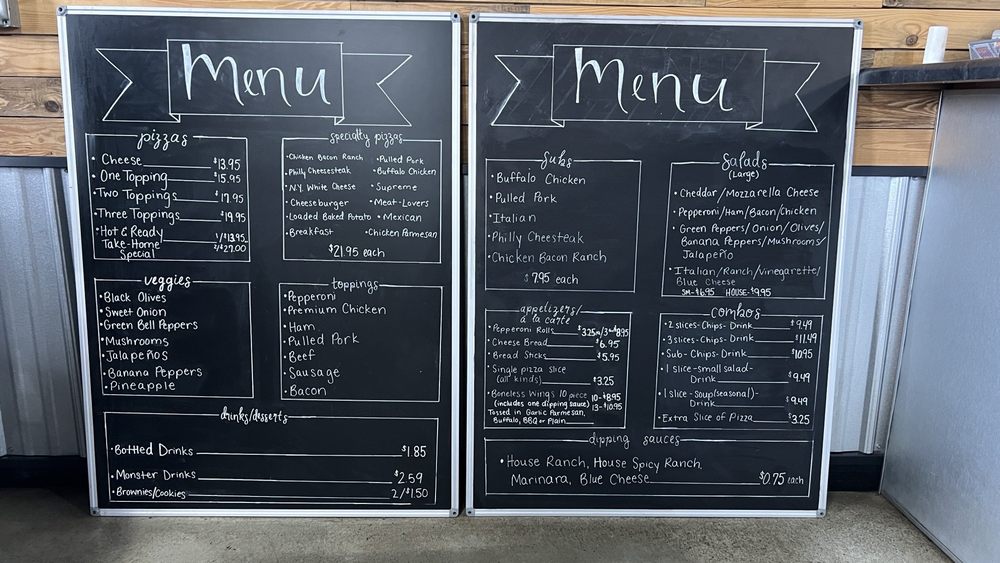 Menu
pizzas
• Cheese $13.95
• One Topping $15.95
• Two Toppings $17.95
• Three Toppings $19.95
• Hot & Ready
Take-Home 1/$13.95
Special 2/$27.00
specialty pizzas
• Chicken Bacon Ranch • Pulled Pork
• Philly Cheesesteak • Buffalo Chicken
• N.Y. White Cheese • Supreme
• Cheeseburger • Meat-Lovers
• Loaded Baked Potato • Mexican
• Breakfast • Chicken Parmesan
$21.95 each
veggies
• Black Olives
• Sweet Onion
• Green Bell Peppers
• Mushrooms
• Jalapeños
• Banana Peppers
• Pineapple
toppings
• Pepperoni
• Premium Chicken
• Ham
• Pulled Pork
• Beef
• Sausage
• Bacon
drinks/desserts
• Bottled Drinks $1.85
• Monster Drinks $2.59
• Brownies/Cookies 2/$1.50
Menu
Subs
• Buffalo Chicken
• Pulled Pork
• Italian
• Philly Cheesteak
• Chicken Bacon Ranch
$7.95 each
Salads
(Large)
• Cheddar/Mozzarella Cheese
• Pepperoni/Ham/Bacon/Chicken
• Green Peppers/Onion/Olives/
Banana Peppers/Mushrooms/
Jalapeño
• Italian/Ranch/Vinegarette/
Blue Cheese
SM-$6.95 HOUSE-$9.95
appetizers/
à la carte
• Pepperoni Rolls $3.25
• Cheese Bread $6.95
• Bread Sticks $5.95
• Single pizza slice
(all kinds) $3.25
• Boneless Wings 10 piece 10-$8.95
(includes one dipping sauce) 13-$10.95
Tossed in Garlic Parmesan,
Buffalo, BBQ or Plain
combos
• 2 slices-Chips-Drink $9.49
• 3 slices-Chips-Drink $11.49
• Sub-Chips-Drink $10.95
• 1 slice-small salad-
Drink $9.49
• 1 slice-soup(seasonal)-
Drink $9.49
• Extra Slice of Pizza $3.25
dipping sauces
• House Ranch, House Spicy Ranch,
Marinara, Blue Cheese $0.75 each